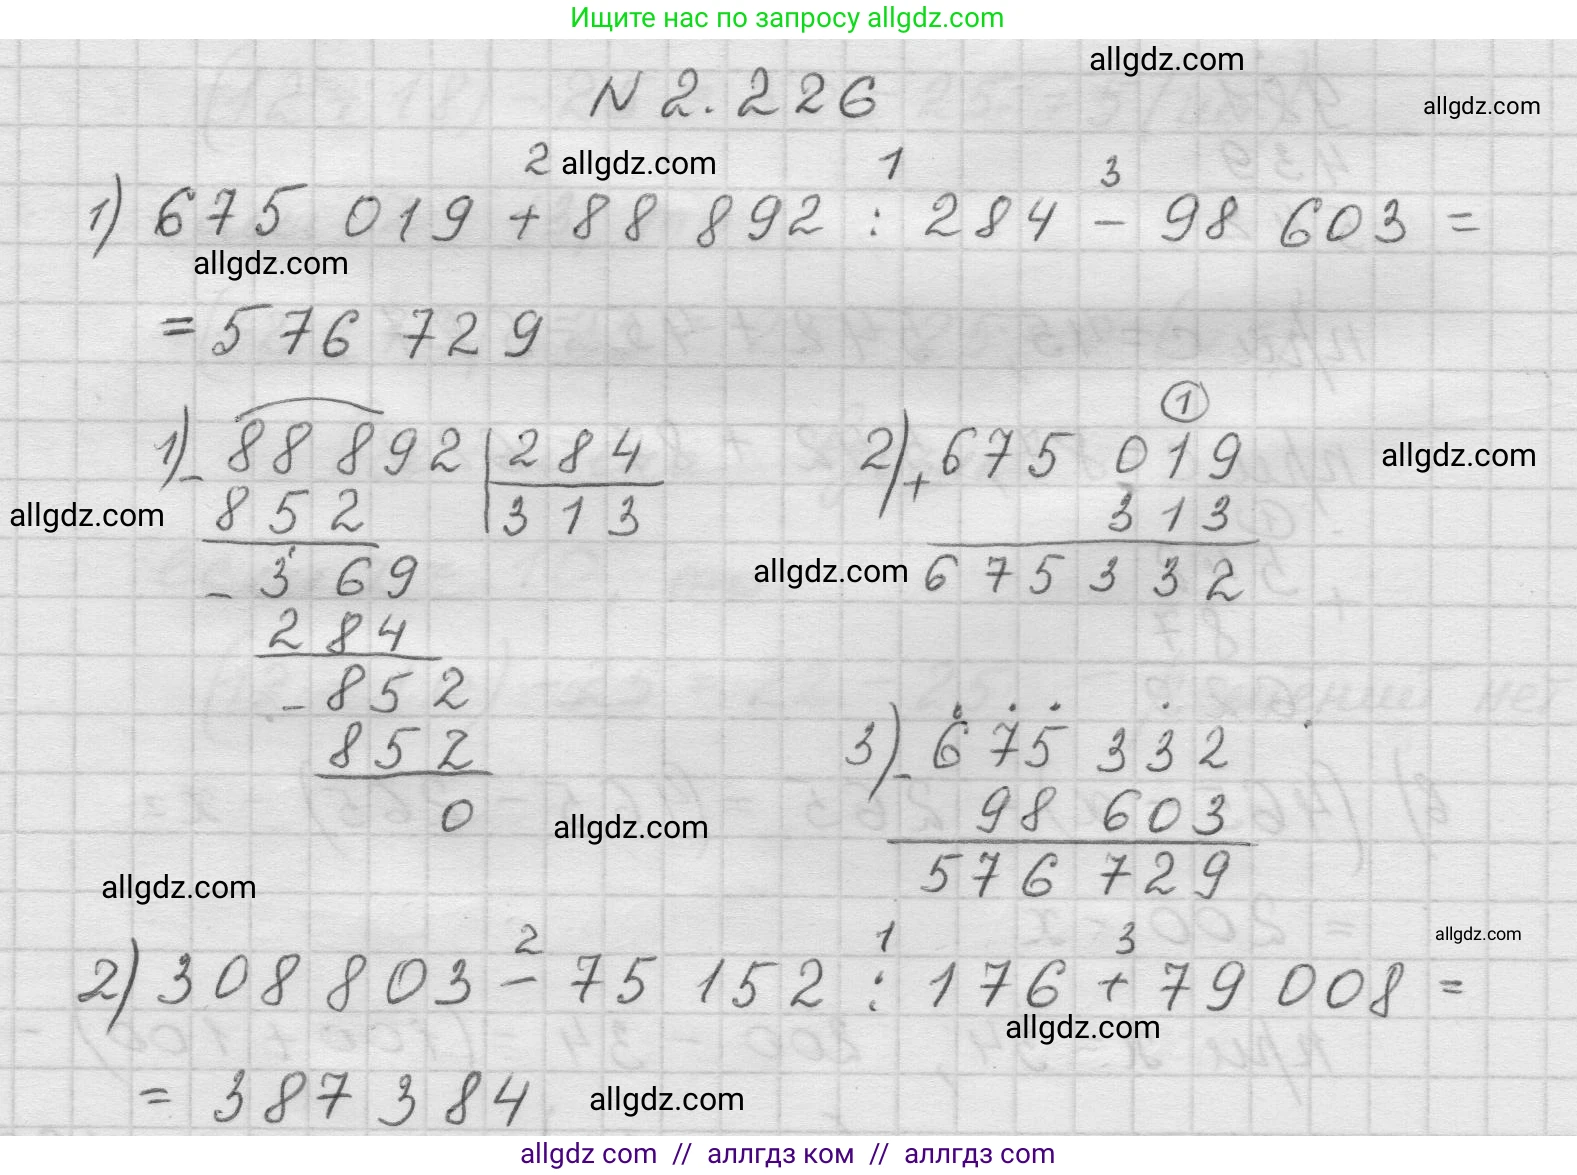 Ищите нас по запросу allgdz.com
allgdz.com
N 2.226
allgdz.com
2 allgdz.com 1 3
1) 675 019 + 88 892 : 284 - 98 603 =
allgdz.com
= 576 729
1) - 88892 | 284
852 | 313
- 369
284
- 852
852
0
allgdz.com
1
2) + 675 019
313
675 332
allgdz.com
allgdz.com
3) - 675 332
98 603
576 729
allgdz.com
allgdz.com
allgdz.com
2 1 3
2) 308 803 - 75 152 : 176 + 79 008 =
allgdz.com
= 387 384
allgdz.com
allgdz com // аллгдз ком // аллгдз com